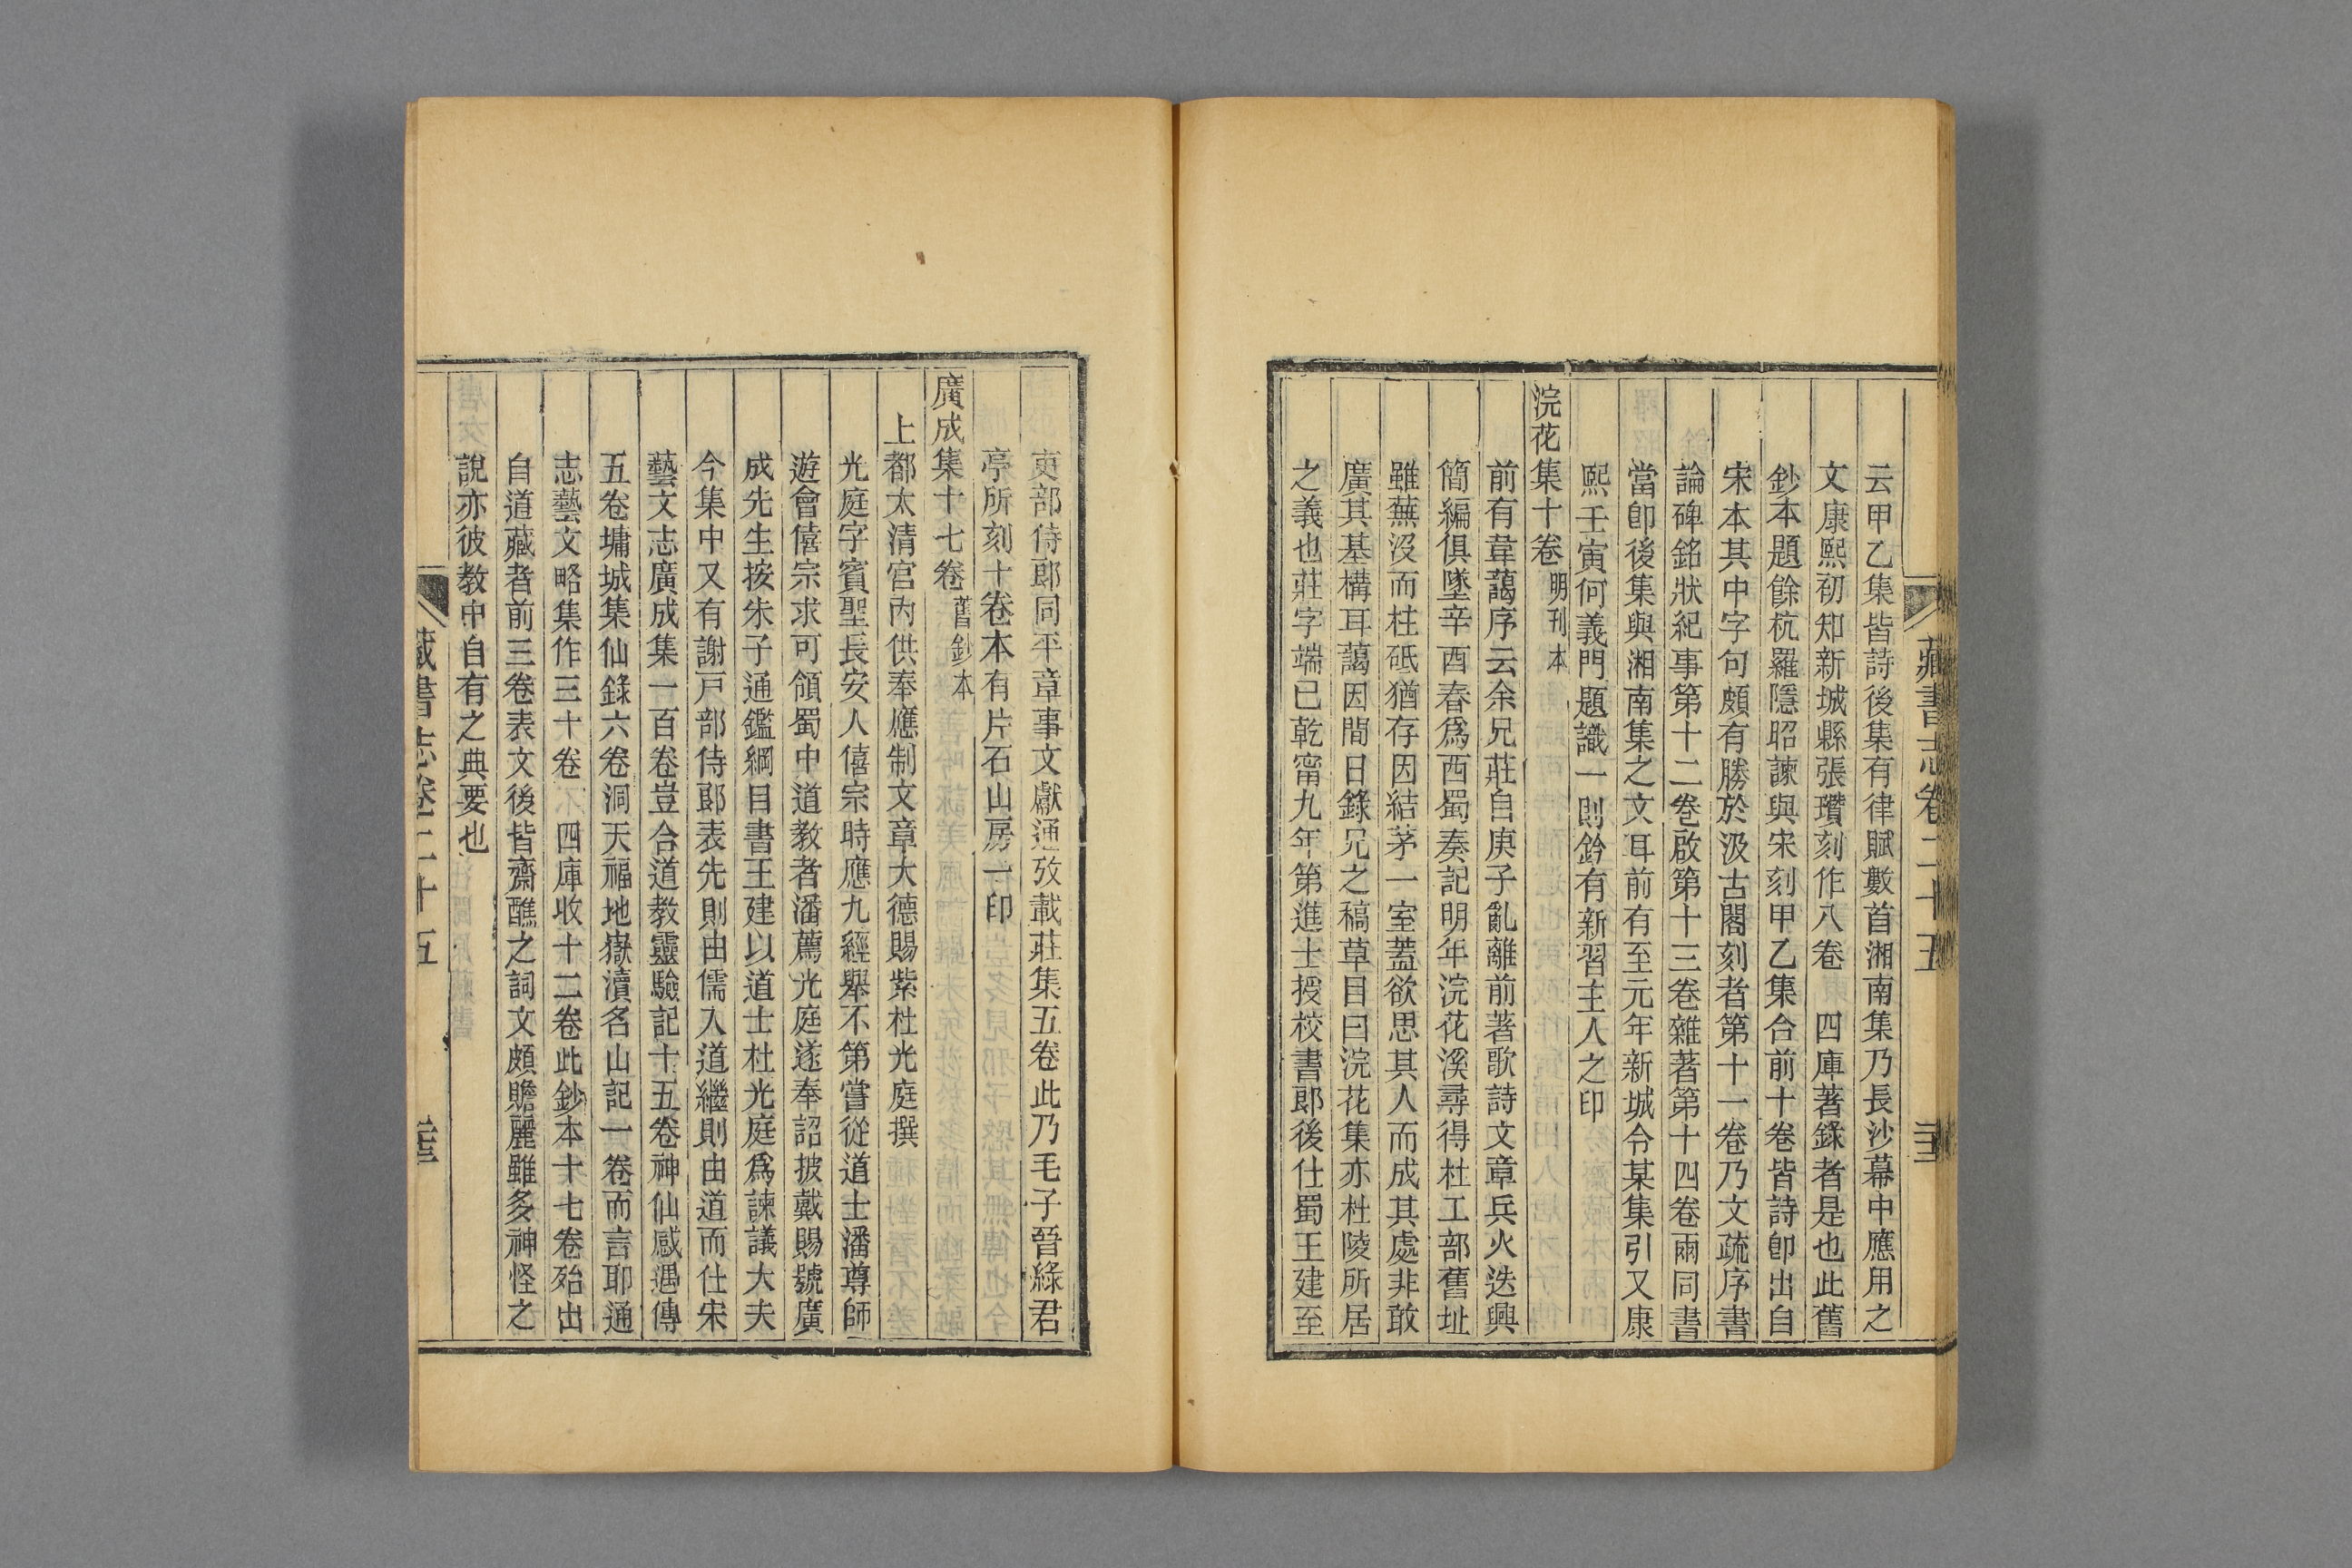 藏書志卷二十五
云甲乙集皆詩後集有律賦數首湘南集乃長沙幕中應用之
文康熙初知新城縣張瓚刻作八卷 四庫著錄者是也此舊
鈔本題餘杭羅隱昭諫與宋刻甲乙集合前十卷皆詩卽出自
宋本其中字句頗有勝於汲古閣刻者第十一卷乃文疏序書
論碑銘狀紀事第十二卷啟第十三卷雜著第十四卷兩同書
當卽後集與湘南集之文耳前有至元年新城令某集引又康
熙壬寅何義門題識一則鈐有新習主人之印
浣花集十卷 明刊本
前有韋藹序云余兄莊自庚子亂離前著歌詩文章兵火迭興
簡編俱墜辛酉春爲西蜀奏記明年浣花溪尋得杜工部舊址
雖蕪沒而柱砥猶存因結茅一室蓋欲思其人而成其處非敢
廣其基構耳藹因間日錄兄之稿草目曰浣花集亦杜陵所居
之義也莊字端已乾甯九年第進士授校書郎後仕蜀王建至
吏部侍郎同平章事文獻通攷載莊集五卷此乃毛子晉綠君
亭所刻十卷本有片石山房一印
廣成集十七卷 舊鈔本
上都太清宮內供奉應制文章大德賜紫杜光庭撰
光庭字賓聖長安人僖宗時應九經舉不第嘗從道士潘尊師
遊會僖宗求可領蜀中道教者潘薦光庭遂奉詔披戴賜號廣
成先生按朱子通鑑綱目書王建以道士杜光庭爲諫議大夫
今集中又有謝戸部侍郎表先則由儒入道繼則由道而仕宋
藝文志廣成集一百卷豈合道教靈驗記十五卷神仙感遇傳
五卷墉城集仙錄六卷洞天福地嶽瀆名山記一卷而言耶通
志藝文略集作三十卷 四庫收十二卷此鈔本十七卷殆出
自道藏者前三卷表文後皆齋醮之詞文頗贍麗雖多神怪之
說亦彼教中自有之典要也
藏書志卷二十五